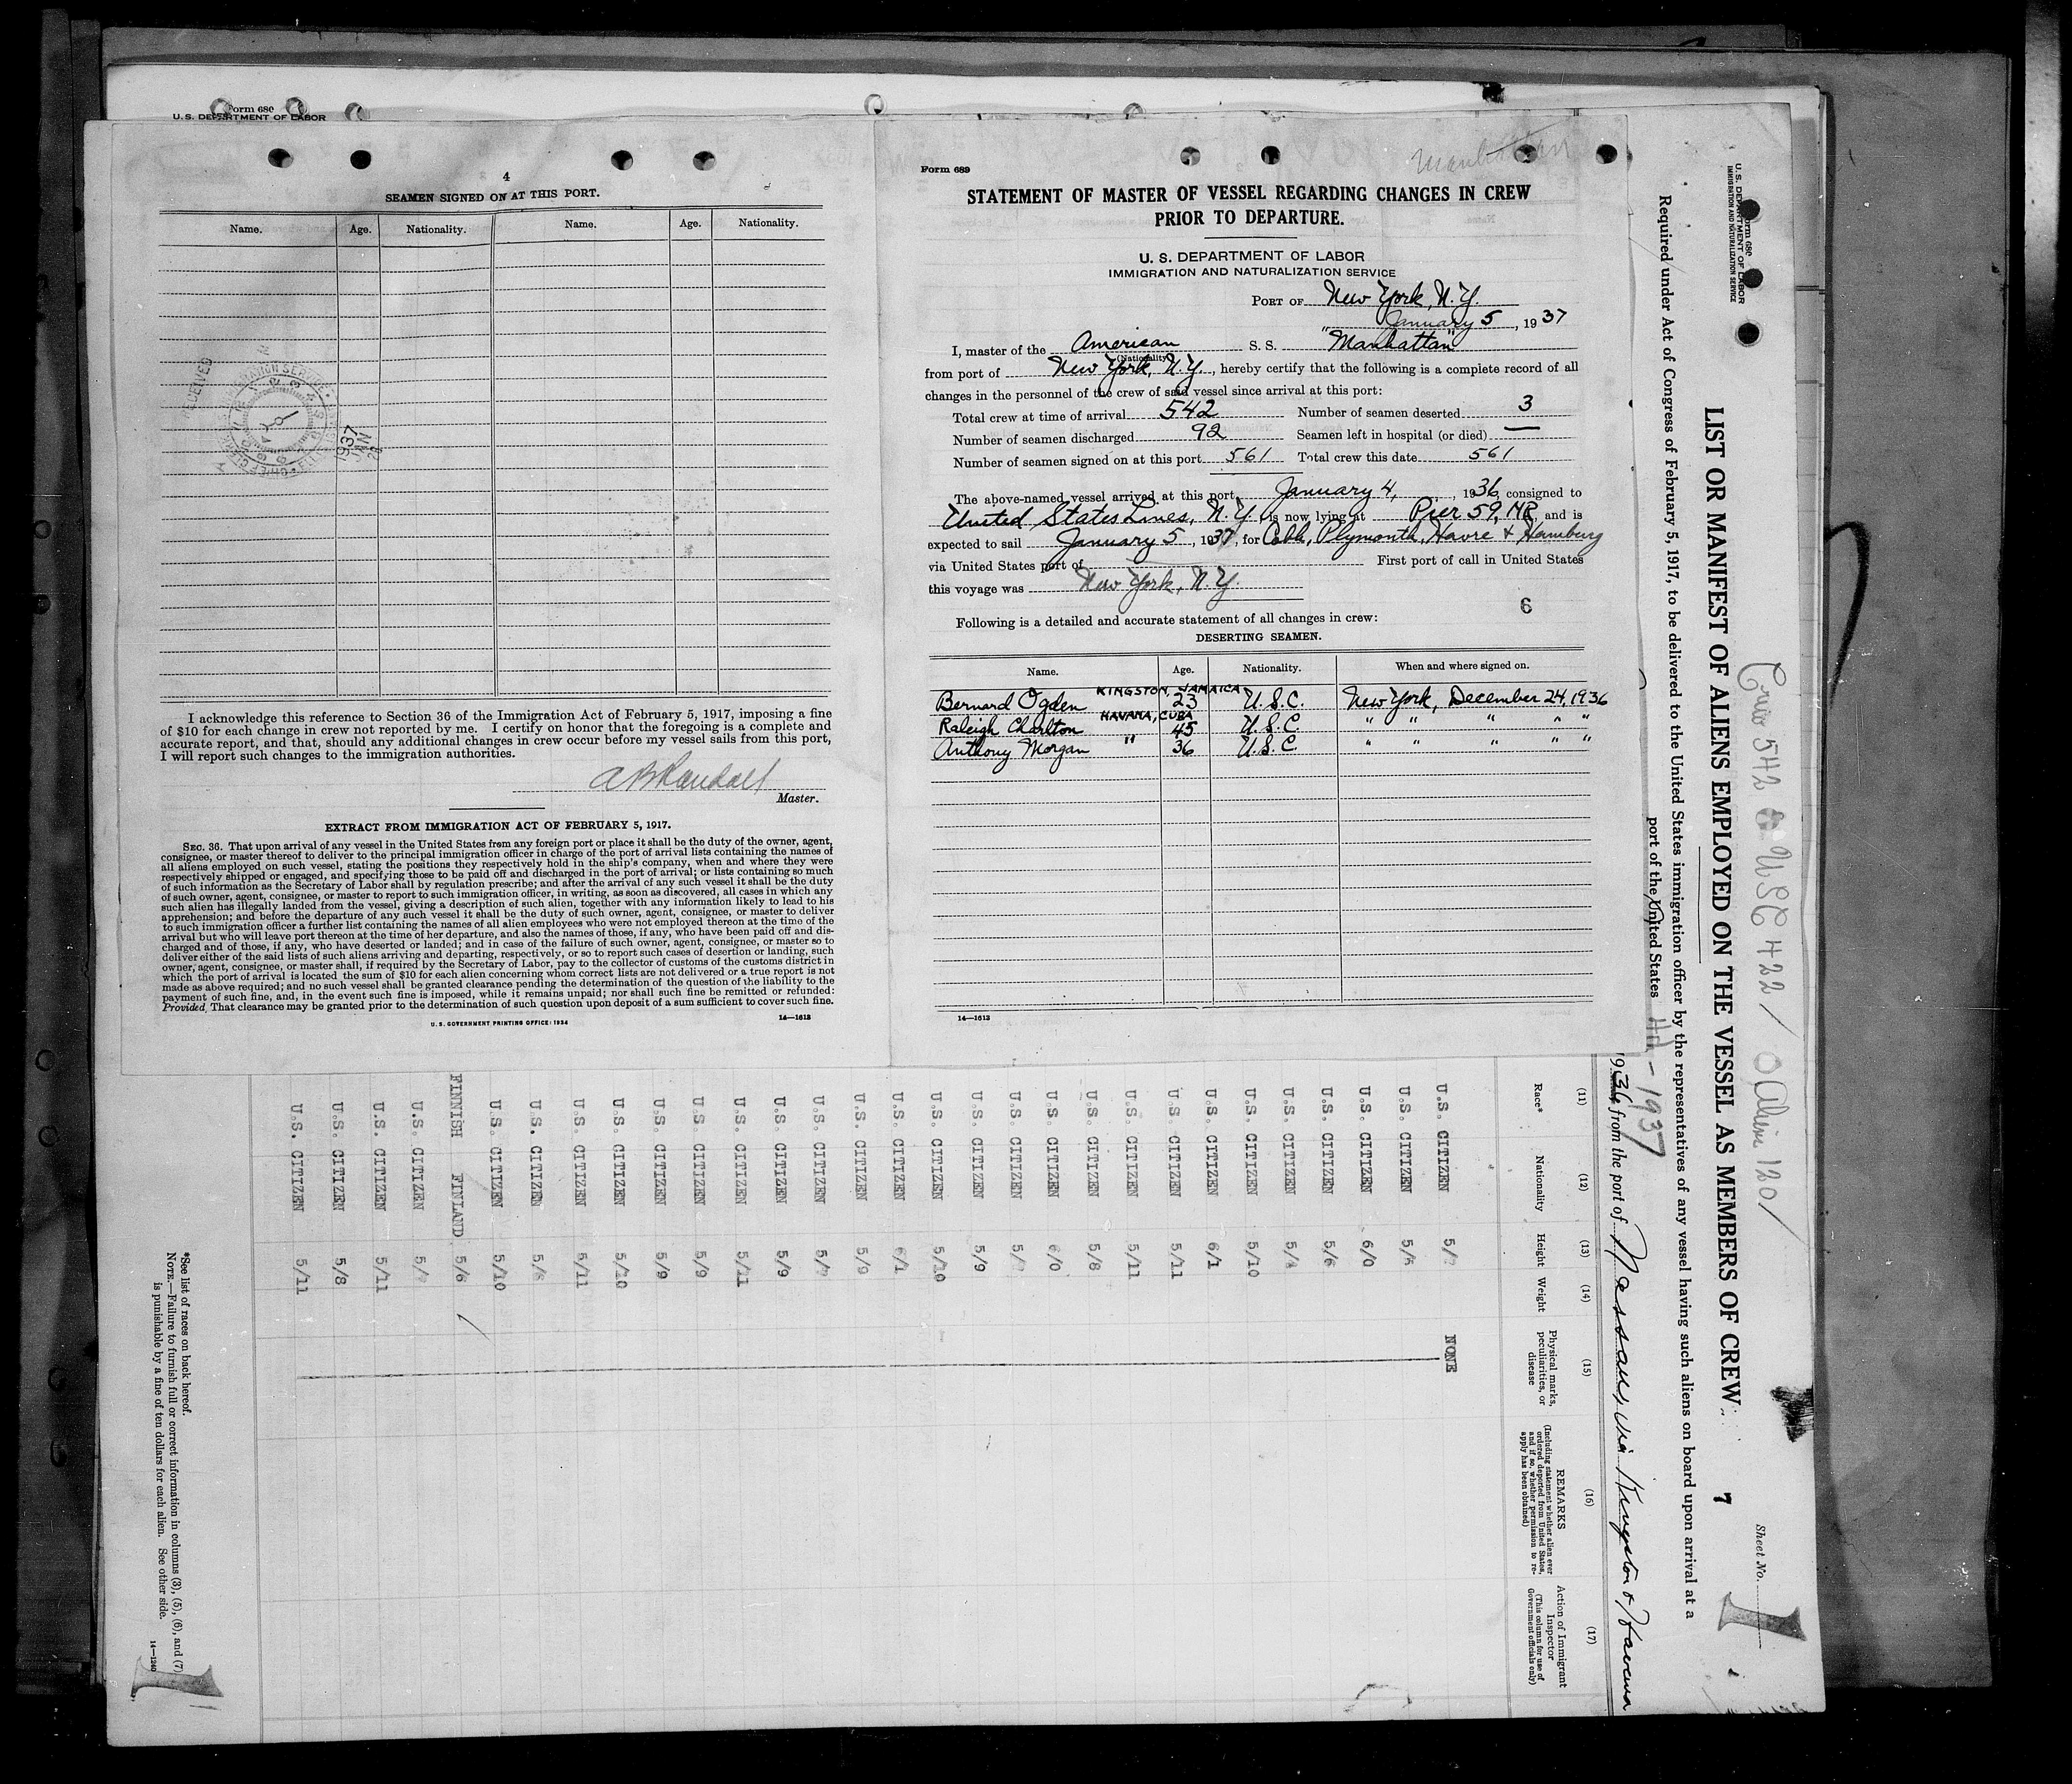 Form 680
U.S. DEPARTMENT OF LABOR
4
SEAMEN SIGNED ON AT THIS PORT.
Name. Age. Nationality. Name. Age. Nationality.
RECEIVED
1937
JAN
I acknowledge this reference to Section 36 of the Immigration Act of February 5, 1917, imposing a fine
of $10 for each change in crew not reported by me. I certify on honor that the foregoing is a complete and
accurate report, and that, should any additional changes in crew occur before my vessel sails from this port,
I will report such changes to the immigration authorities.
A B Randall
Master.
EXTRACT FROM IMMIGRATION ACT OF FEBRUARY 5, 1917.
SEC. 36. That upon arrival of any vessel in the United States from any foreign port or place it shall be the duty of the owner, agent,
consignee, or master thereof to deliver to the principal immigration officer in charge of the port of arrival lists containing the names of
all aliens employed on such vessel, stating the positions they respectively hold in the ship's company, when and where they were
respectively shipped or engaged, and specifying those to be paid off and discharged in the port of arrival; or lists containing so much
of such information as the Secretary of Labor shall by regulation prescribe; and after the arrival of any such vessel it shall be the duty
of such owner, agent, consignee, or master to report to such immigration officer, in writing, as soon as discovered, all cases in which any
such alien has illegally landed from the vessel, giving a description of such alien, together with any information likely to lead to his
apprehension; and before the departure of any such vessel it shall be the duty of such owner, agent, consignee, or master to deliver
to such immigration officer a further list containing the names of all alien employees who were not employed thereon at the time of the
arrival but who will leave port thereon at the time of her departure, and also the names of those, if any, who have been paid off and dis-
charged and of those, if any, who have deserted or landed; and in case of the failure of such owner, agent, consignee, or master so to
deliver either of the said lists of such aliens arriving and departing, respectively, or so to report such cases of desertion or landing, such
owner, agent, consignee, or master shall, if required by the Secretary of Labor, pay to the collector of customs of the customs district in
which the port of arrival is located the sum of $10 for each alien concerning whom correct lists are not delivered or a true report is not
made as above required; and no such vessel shall be granted clearance pending the determination of the question of the liability to the
payment of such fine, and, in the event such fine is imposed, while it remains unpaid; nor shall such fine be remitted or refunded:
Provided, That clearance may be granted prior to the determination of such question upon deposit of a sum sufficient to cover such fine.
U.S. GOVERNMENT PRINTING OFFICE: 1934
14—1613
Manhattan
Form 689
STATEMENT OF MASTER OF VESSEL REGARDING CHANGES IN CREW
PRIOR TO DEPARTURE.
U. S. DEPARTMENT OF LABOR
IMMIGRATION AND NATURALIZATION SERVICE
PORT OF New York, N.Y.
January 5, 1937
I, master of the American S. S. "Manhattan"
(Nationality)
from port of New York, N.Y., hereby certify that the following is a complete record of all
changes in the personnel of the crew of said vessel since arrival at this port:
Total crew at time of arrival 542 Number of seamen deserted 3
Number of seamen discharged 92 Seamen left in hospital (or died) —
Number of seamen signed on at this port 561 Total crew this date 561
The above-named vessel arrived at this port January 4, 1936, consigned to
United States Lines, N.Y. is now lying at Pier 59, NR, and is
expected to sail January 5, 1937, for Cobh, Plymouth, Havre & Hamburg
via United States port of First port of call in United States
this voyage was New York, N.Y.
6
Following is a detailed and accurate statement of all changes in crew:
DESERTING SEAMEN.
Name. Age. Nationality. When and where signed on.
KINGSTON, JAMAICA
Bernard Ogden 23 U.S.C. New York, December 24, 1936
HAVANA, CUBA
Raleigh Charlton 45 U.S.C. " " " " "
Anthony Morgan " 36 U.S.C. " " " " "
14—1613
Form 680
U.S. DEPARTMENT OF LABOR
IMMIGRATION AND NATURALIZATION SERVICE
Crew 542 USC 422 / Alien 120 /
Sheet No. 1
LIST OR MANIFEST OF ALIENS EMPLOYED ON THE VESSEL AS MEMBERS OF CREW
7
Required under Act of Congress of February 5, 1917, to be delivered to the United States immigration officer by the representatives of any vessel having such aliens on board upon arrival at a
port of the United States
1937
1936, from the port of Nassau via Kingston & Havana
(11) (12) (13) (14) (15) (16) (17)
Race* Nationality Height Weight Physical marks, peculiarities, or disease
REMARKS
(Including statement whether alien ever ordered deported from United States, and if so, whether permission to re-apply has been obtained)
Action of Immigrant Inspector
(This column for use of Government officials only)
U.S. CITIZEN NONE
U.S. CITIZEN
U.S. CITIZEN 6/0
U.S. CITIZEN 5/6
U.S. CITIZEN
U.S. CITIZEN 5/10
U.S. CITIZEN 6/1
U.S. CITIZEN 5/11
U.S. CITIZEN 5/11
U.S. CITIZEN 5/8
U.S. CITIZEN 6/0
U.S. CITIZEN
U.S. CITIZEN 5/9
U.S. CITIZEN 5/10
U.S. CITIZEN 6/1
U.S. CITIZEN 5/9
U.S. CITIZEN
U.S. CITIZEN 5/9
U.S. CITIZEN 5/11
U.S. CITIZEN 5/9
U.S. CITIZEN 5/9
U.S. CITIZEN 5/10
U.S. CITIZEN 5/11
U.S. CITIZEN
U.S. CITIZEN 5/10
FINNISH FINLAND 5/6 /
U.S. CITIZEN
U.S. CITIZEN 5/11
U.S. CITIZEN 5/8
U.S. CITIZEN 5/11
*See list of races on back hereof.
NOTE.—Failure to furnish full or correct information in columns (3), (5), (6), and (7)
is punishable by a fine of ten dollars for each alien. See other side.
14—1240
1